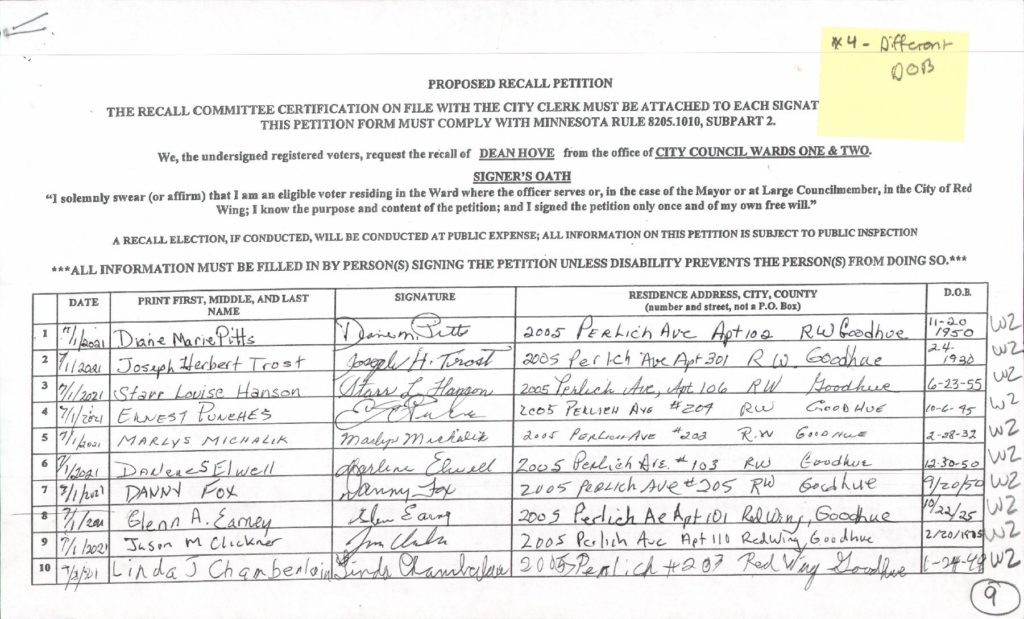 *4 - Different
DOB
PROPOSED RECALL PETITION
THE RECALL COMMITTEE CERTIFICATION ON FILE WITH THE CITY CLERK MUST BE ATTACHED TO EACH SIGNAT
THIS PETITION FORM MUST COMPLY WITH MINNESOTA RULE 8205.1010, SUBPART 2.
We, the undersigned registered voters, request the recall of DEAN HOVE from the office of CITY COUNCIL WARDS ONE & TWO.
SIGNER'S OATH
"I solemnly swear (or affirm) that I am an eligible voter residing in the Ward where the officer serves or, in the case of the Mayor or at Large Councilmember, in the City of Red
Wing; I know the purpose and content of the petition; and I signed the petition only once and of my own free will."
A RECALL ELECTION, IF CONDUCTED, WILL BE CONDUCTED AT PUBLIC EXPENSE; ALL INFORMATION ON THIS PETITION IS SUBJECT TO PUBLIC INSPECTION
***ALL INFORMATION MUST BE FILLED IN BY PERSON(S) SIGNING THE PETITION UNLESS DISABILITY PREVENTS THE PERSON(S) FROM DOING SO.***
DATE PRINT FIRST, MIDDLE, AND LAST NAME SIGNATURE RESIDENCE ADDRESS, CITY, COUNTY (number and street, not a P.O. Box) D.O.B.
1 7/1/2021 Diane Marie Pitts Diane M. Pitts 2005 Perlich Ave Apt 102 RW Goodhue 11-20 1950 W2
2 7/1/2021 Joseph Herbert Trost Joseph H. Trost 2005 Perlich Ave Apt 301 R.W. Goodhue 2-4-1930 W2
3 7/1/2021 Starr Louise Hanson Starr L Hanson 2005 Perlich Ave, Apt. 106 RW Goodhue 6-23-55 W2
4 7/1/2021 ERNEST PUNCHES 2005 PERLICH AVE #204 RW GOODHUE 10-6-45 W2
5 7/1/2021 MARLYS MICHALIK Marlys Michalik 2005 PERLICH AVE #202 R.W GOODHUE 2-28-32 W2
6 7/1/2021 Darlene S Elwell Darlene Elwell 2005 Perlich Ave. #103 RW Goodhue 12-30-50 W2
7 7/1/2021 DANNY FOX Danny Fox 2005 PERLICH AVE #205 RW Goodhue 9/20/50 W2
8 7/1/2021 Glenn A. Earney Glen Earny 2005 Perlich Ae Apt 101 Red Wing, Goodhue 10/22/25 W2
9 7/1/2021 Jason M Clickner 2005 Perlich Ave Apt 110 Redwing, Goodhue W2
10 Linda J Chamberlain Linda Chamberlain 2005 Perlich #207 Red Wing Goodhue 1-24-48 W2
9